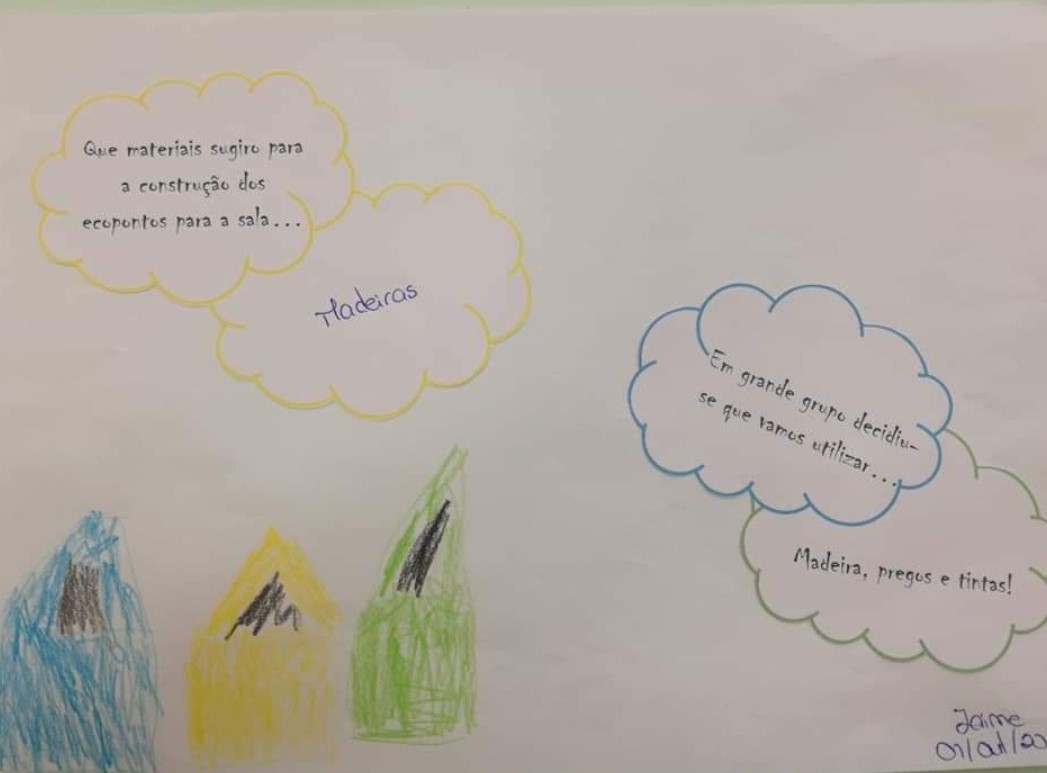 Que materiais sugiro para
a construção dos
ecopontos para a sala...
Madeiras
Em grande grupo decidiu-
se que vamos utilizar...
Madeira, pregos e tintas!
Jaime
01/out/20